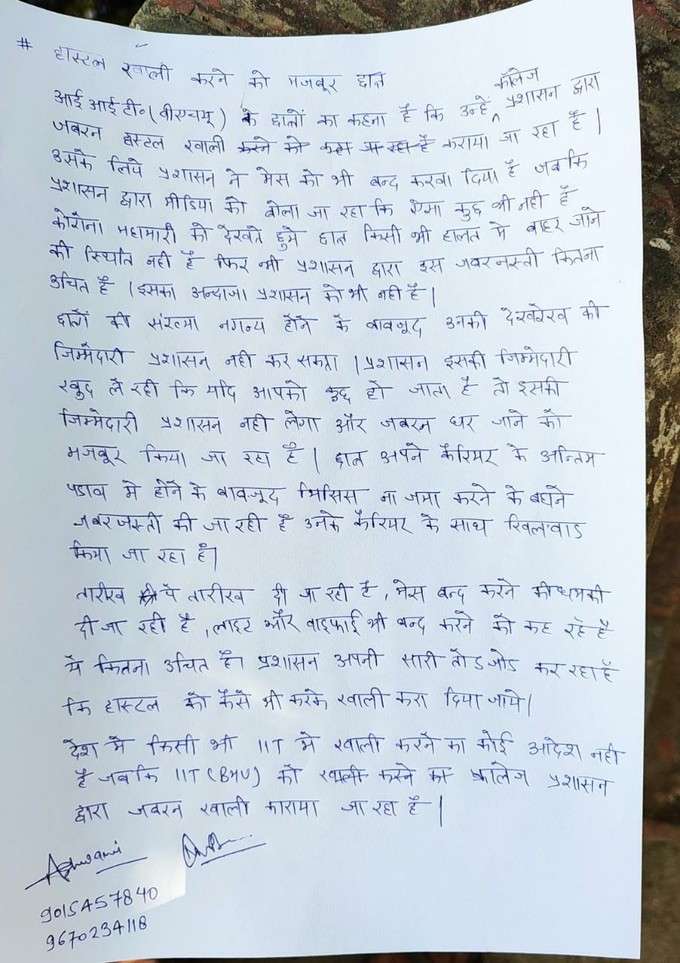 # हास्टल खाली करने को मजबूर छात्र
कॉलेज
आई आई टी॰ (बीएचयू) के छात्रों का कहना है कि उन्हे प्रशासन द्वारा
जबरन हास्टल खाली करने को कहा जा रहा है कराया जा रहा है |
उसके लिये प्रशासन ने मेस को भी बन्द करवा दिया है जबकि
प्रशासन द्वारा मीडिया को बोला जा रहा कि ऐसा कुछ भी नही है
कोरोना महामारी को देखते हुये छात्र किसी भी हालत मे बाहर जाने
की स्थिति नही है फिर भी प्रशासन द्वारा इस जबरजस्ती कितना
उचित है | इसका अन्दाजा प्रशासन को भी नही है |
छात्रों की संख्या नगन्य होने के बावजूद उनकी देखरेख की
जिम्मेदारी प्रशासन नही कर सकता | प्रशासन इसकी जिम्मेदारी
खुद ले रही कि यदि आपको कुछ हो जाता है तो इसकी
जिम्मेदारी प्रशासन नही लेगा और जबरन घर जाने को
मजबूर किया जा रहा है | छात्र अपने कैरियर के अन्तिम
पडाव मे होने के बावजूद थिसिस ना जमा करने के बहाने
जबरजस्ती की जा रही है उनके कैरियर के साथ खिलवाड
किया जा रहा है|
तारीख पे तारीख दी जा रही है, मेस बन्द करने की धमकी
दी जा रही है, लाइट और वाइफाई भी बन्द करने को कह रहे है
ये कितना उचित है। प्रशासन अपनी सारी तोड जोड कर रहा है
कि हास्टल को कैसे भी करके खाली करा दिया जाये|
देश मे किसी भी IIT मे खाली करने का कोई आदेश नही
है जबकि IIT (BHU) को खाली करने का कालेज प्रशासन
द्वारा जबरन खाली कारामा जा रहा है |
Ashwani
9015457840
9670234118